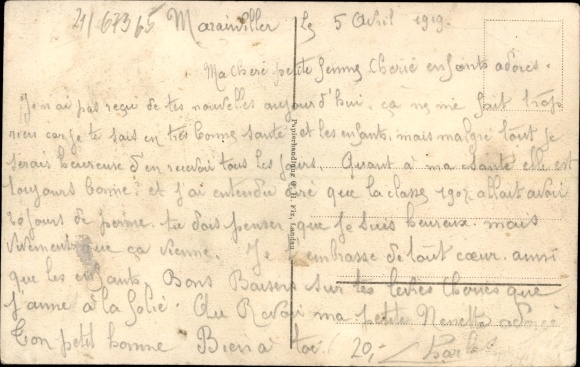 21/6733 65 Marainviller le 5 Avril 1919.
Ma cheré petite femme cherié enfants adores.
Je n ai pas reçu de tes nouvelles aujourd'hui. ça ne me fait trop
rien car je te sais en tres bonne santé et les enfants. mais malgré tout je
serais heureuse d en recevoir tous les jours. Quant à ma santé elle est
toujours bonne. et j'ai entendu que la classe 1907 allait avoir
20 jours de perme. tu dois penser que je suis heureux. mais
vivement que ça vienne. Je t embrasse de tout cœur. ainsi
que les enfants. Bons Baisers sur tes levres cheries que
j'aime à la folie. Au Revoir ma petite Nenette adorée
Ton petit homme Bien à toi 20,-